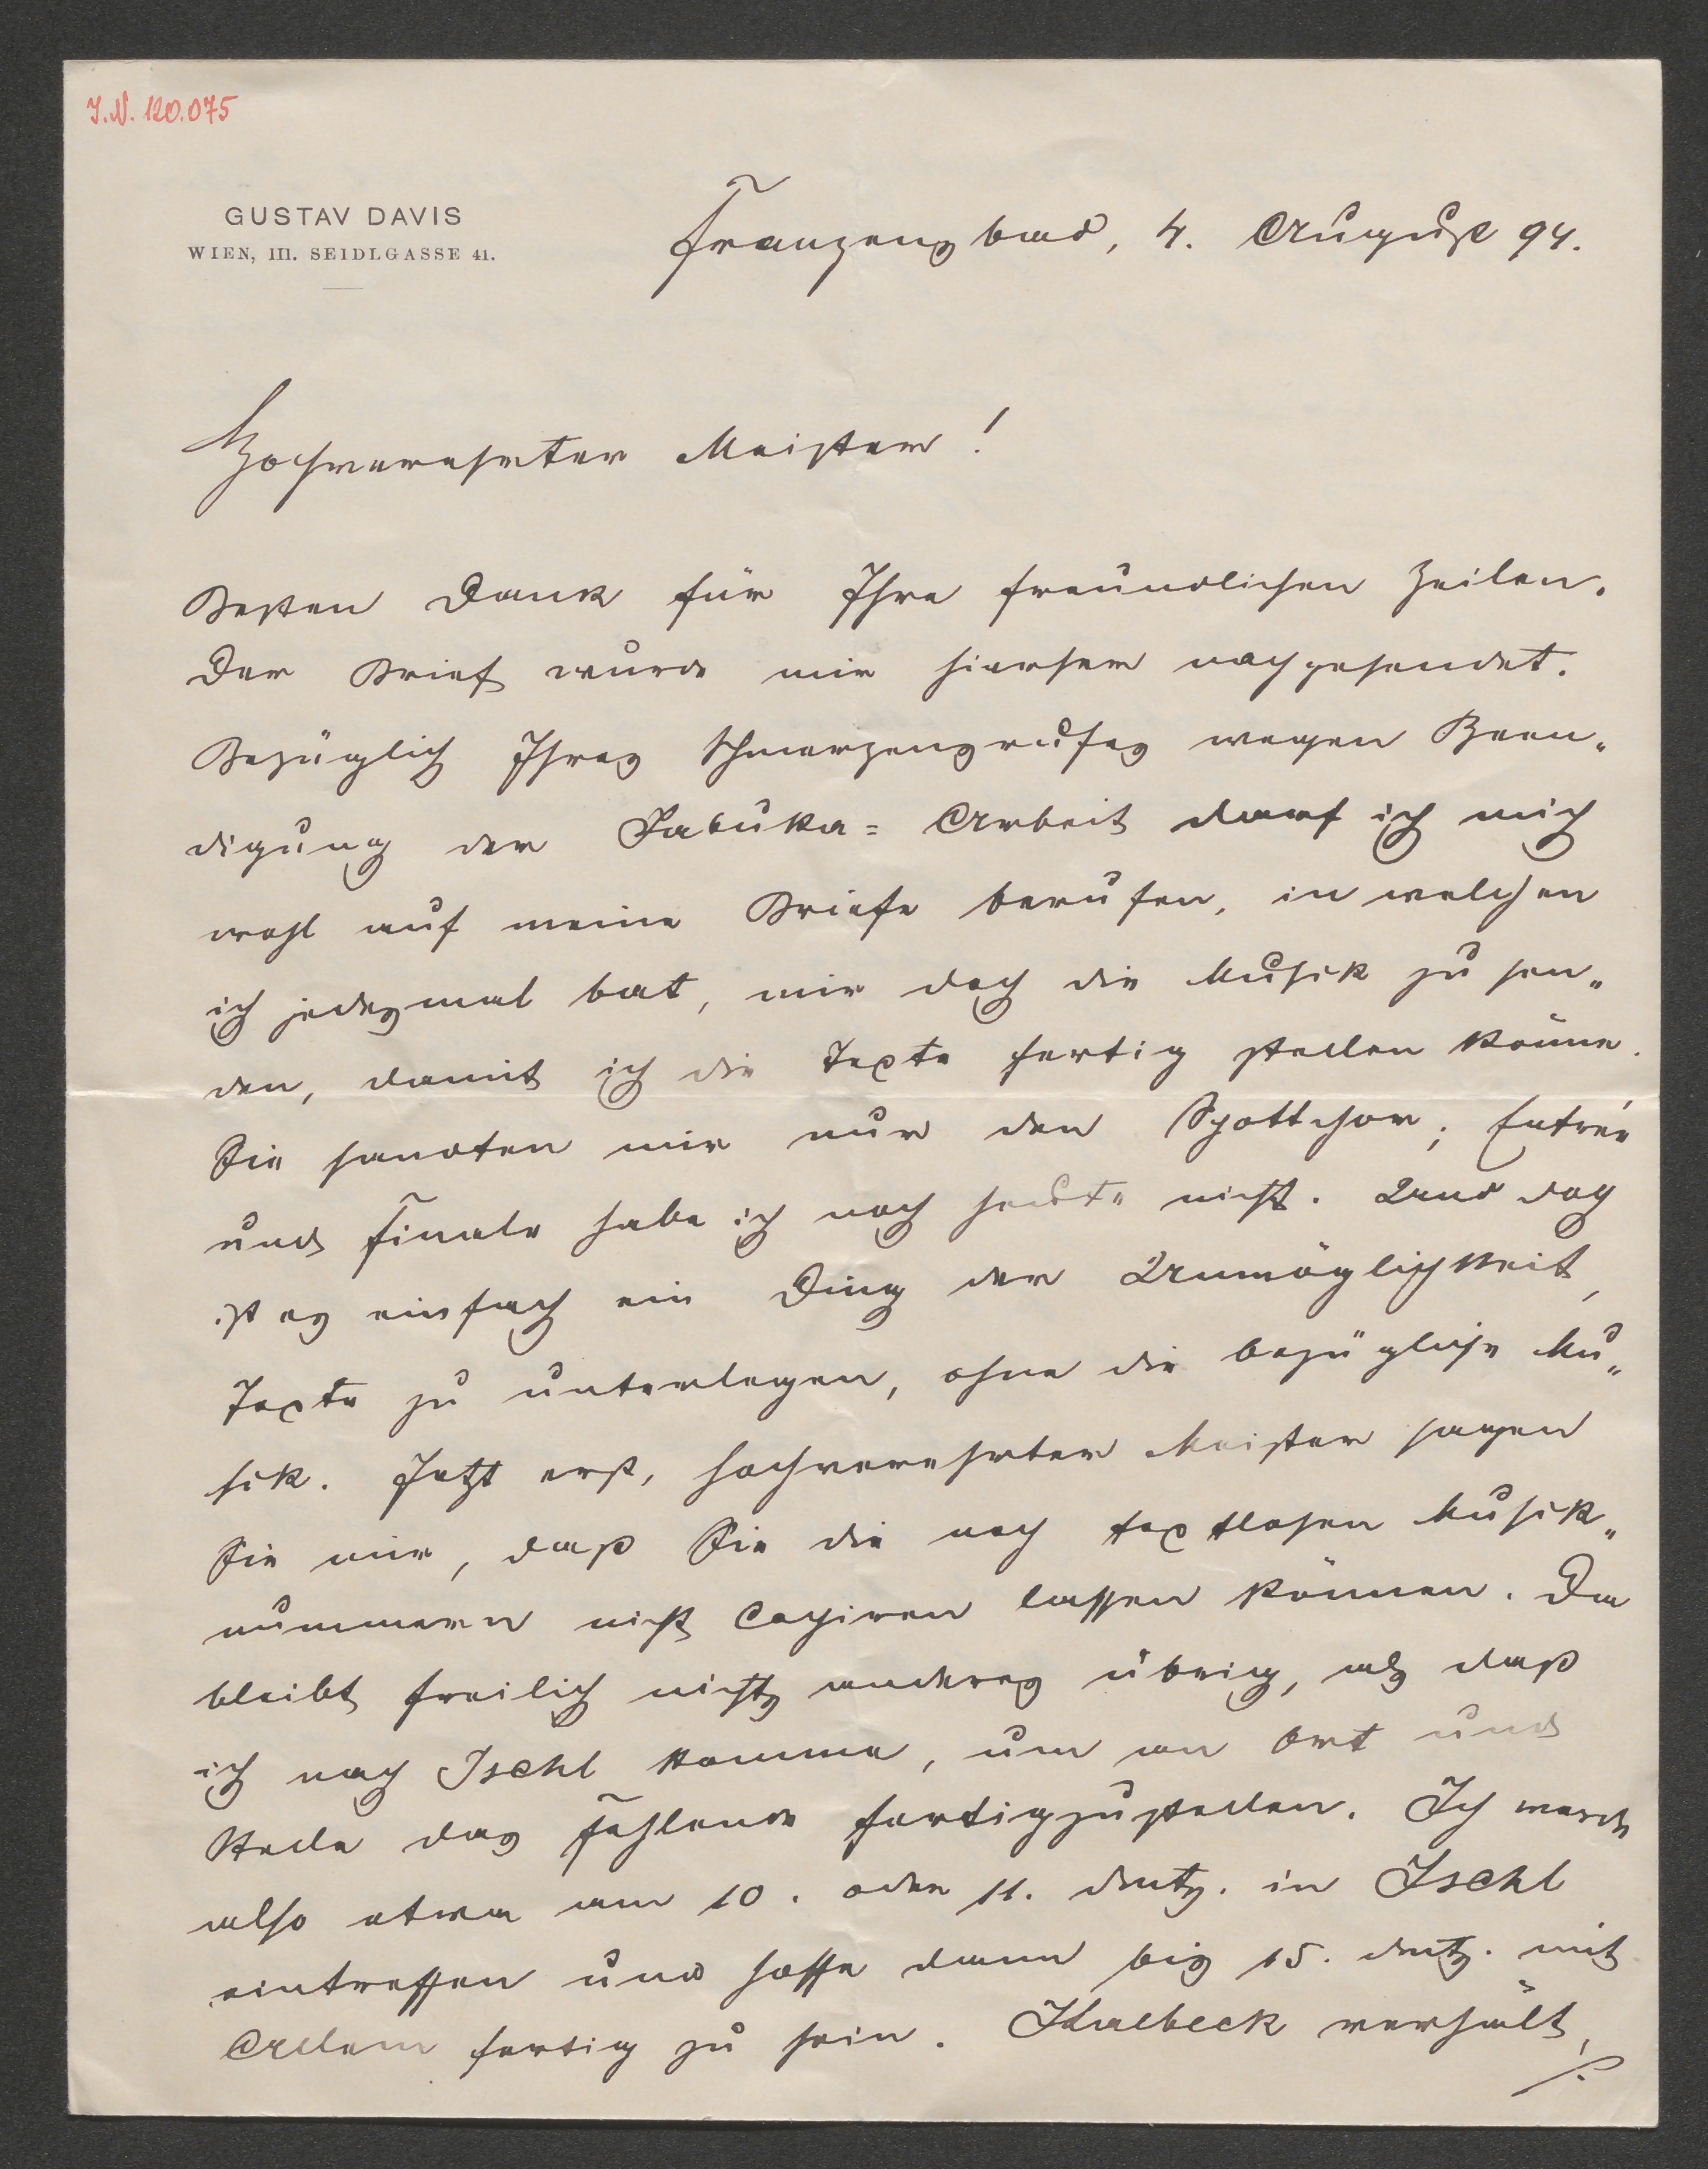 I.N. 120.075
GUSTAV DAVIS
WIEN, III. SEIDLGASSE 41.
Franzensbad, 4. August 94.
Hochverehrter Meister!
Besten Dank für Ihre freundlichen Zeilen.
Der Brief wurde mir hierher nachgesendet.
Bezüglich Ihres Schmerzensrufes wegen Been„
digung der Jabuka= Arbeit darf ich mich
wohl auf meine Briefe berufen, in welchen
ich jedesmal bat, mir doch die Musik zu sen„
den, damit ich die Texte fertig stellen könne.
Sie sandten mir nur den Spottchor; Entrée
und Finale habe ich noch heute nicht. Und doch
ist es einfach ein Ding der Unmöglichkeit,
Texte zu unterlegen, ohne die bezügliche Mu„
sik. Jetzt erst, hochverehrter Meister sagen
Sie mir, daß Sie die noch textlosen Musik„
nummern nicht copiren lassen können. Da
bleibt freilich nichts anderes übrig, als daß
ich nach Ischl komme, um an Ort und
Stelle das Fehlende fertigzustellen. Ich werde
also etwa am 10. oder 11. dmts. in Ischl
eintreffen und hoffe dann bis 15. dmts. mit
Allem fertig zu sein. Kalbeck verhält,
./.